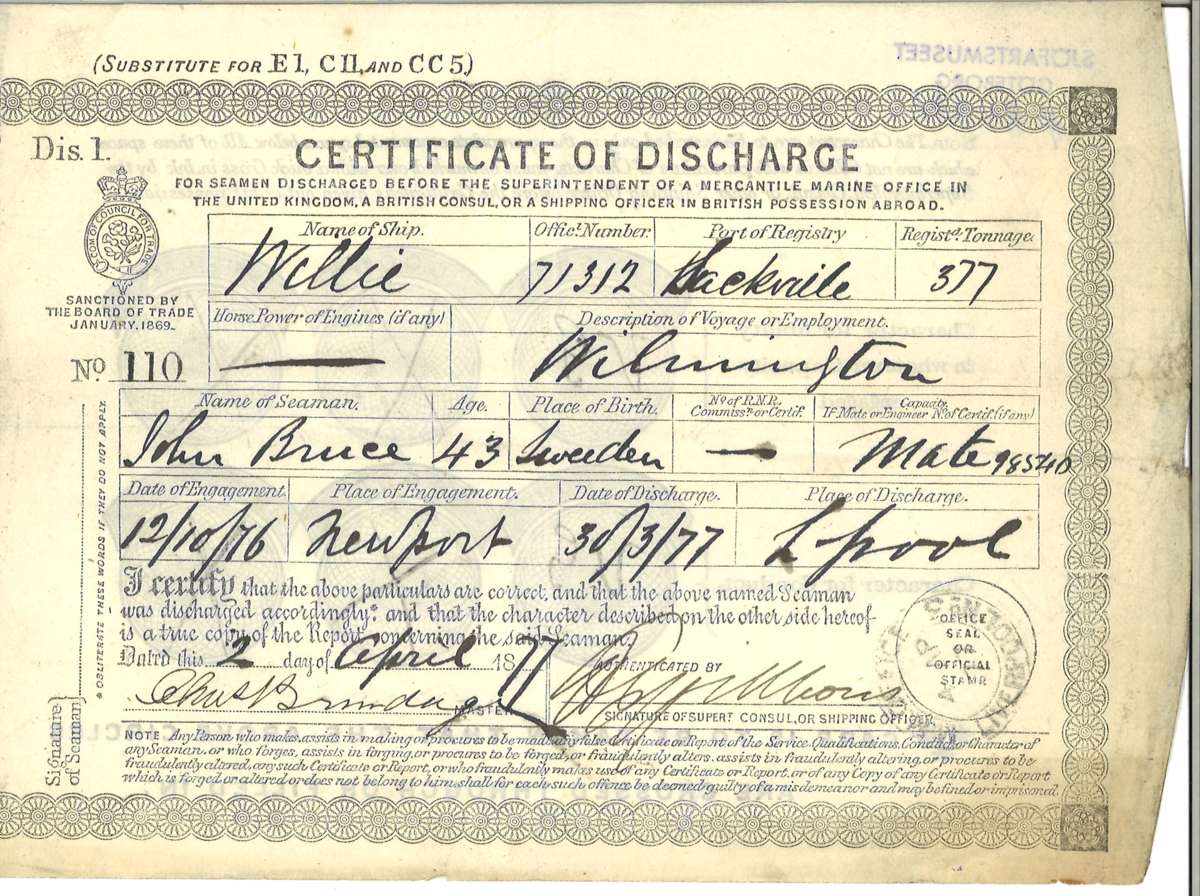 (SUBSTITUTE FOR E1, C11, AND CC5.)
SJÖFARTSMUSEET
GÖTEBORG
Dis. 1.
CERTIFICATE OF DISCHARGE
FOR SEAMEN DISCHARGED BEFORE THE SUPERINTENDENT OF A MERCANTILE MARINE OFFICE IN
THE UNITED KINGDOM, A BRITISH CONSUL, OR A SHIPPING OFFICER IN BRITISH POSSESSION ABROAD.
SANCTIONED BY
THE BOARD OF TRADE
JANUARY. 1869.
No 110
Name of Ship. Offic.l Number. Port of Registry Regist.d Tonnage.
Willie 71312 Sackville 377
Horse Power of Engines (if any) Description of Voyage or Employment.
— Wilmington
Name of Seaman. Age. Place of Birth. No of R.N.R. Commissn. or Certif. Capacity. If Mate or Engineer No. of Certif. (if any)
John Bruce 43 Sweden — Mate 98540
Date of Engagement. Place of Engagement. Date of Discharge. Place of Discharge.
12/10/76 Newport 30/3/77 Lpool
I certify that the above particulars are correct, and that the above named Seaman
was discharged accordingly,* and that the character described on the other side hereof
is a true copy of the Report concerning the said Seaman.
Dated this 2 day of April 1877
AUTHENTICATED BY
MASTER
SIGNATURE OF SUPERT CONSUL, OR SHIPPING OFFICER
OFFICE
SEAL
OR
OFFICIAL
STAMP
* OBLITERATE THESE WORDS IF THEY DO NOT APPLY.
Signature
of Seaman
NOTE Any Person who makes, assists in making or procures to be made, any false Certificate or Report of the Service, Qualifications, Conduct, or Character of
any Seaman, or who forges, assists in forging, or procures to be forged, or fraudulently alters, assists in fraudulently altering, or procures to be
fraudulently altered, any such Certificate or Report, or who fraudulently makes use of any Certificate or Report, or of any Copy of any Certificate or Report
which is forged or altered or does not belong to him, shall for each such offence be deemed guilty of a misdemeanor and may be fined or imprisoned.